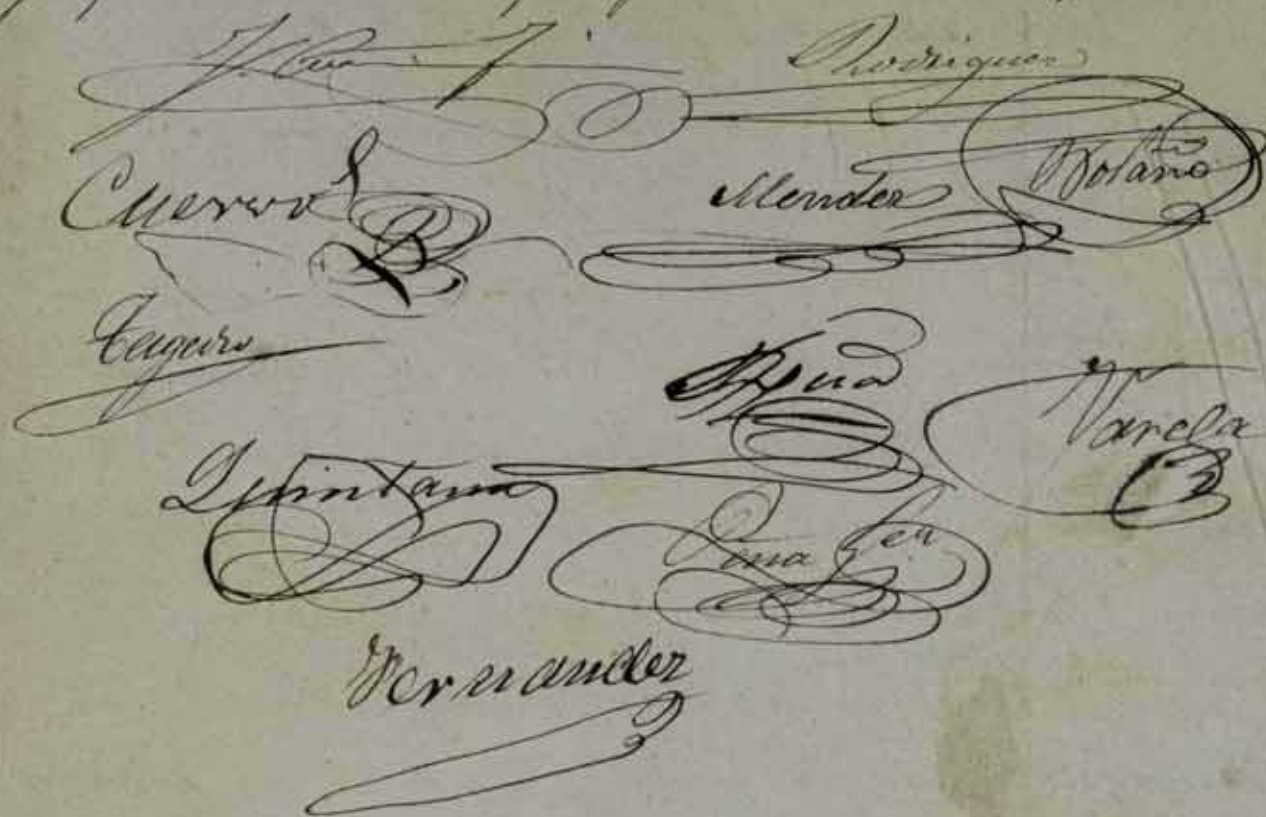 Rodriguez
Cuervo Mendez Bolaño
Teigeiro
Varela
Quintana
Pena
Fernandez